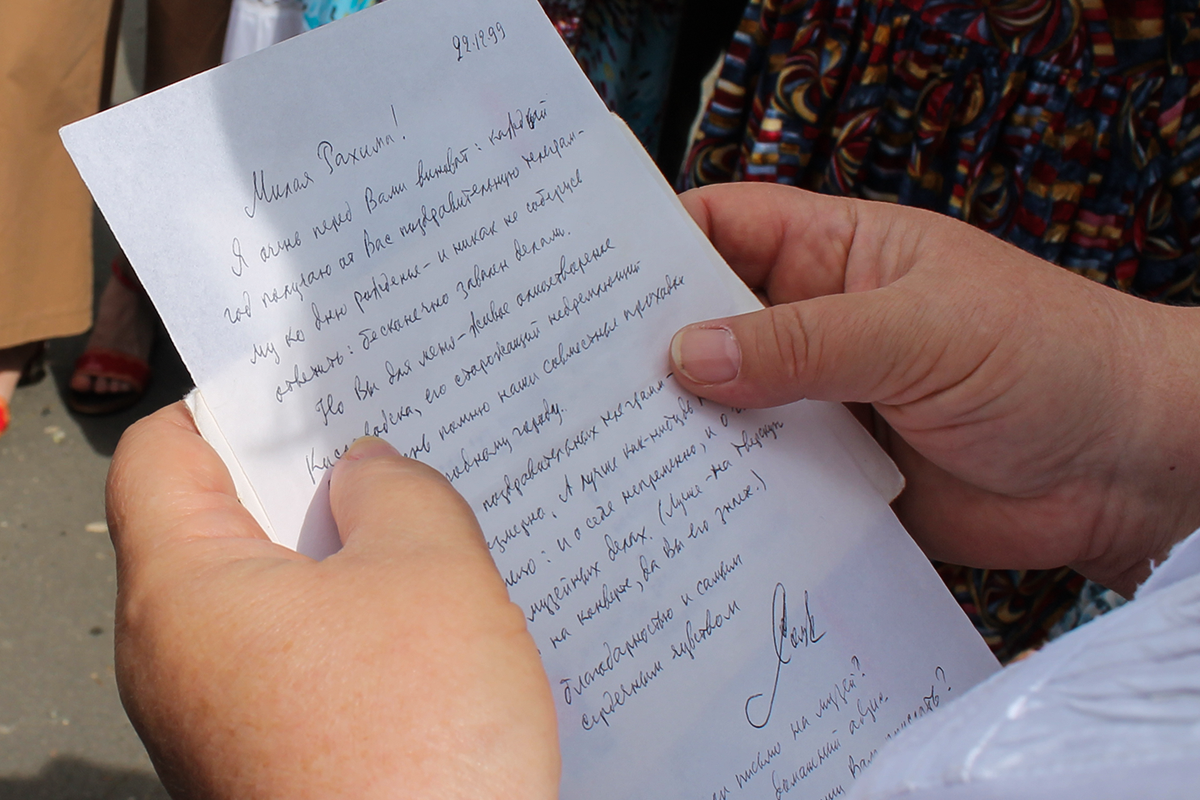 22.12.99
Милая Рахима!
Я очень перед Вами виноват: каждый
год получаю от Вас поздравительную телеграм-
му ко дню рождения – и никак не соберусь
ответить: бесконечно завален делами.
Но Вы для меня – живое олицетворение
его сторожащий недремлющий
помню наши совместные прогулки
городу.
поздравительных телеграмм-
А лучше как-нибудь
и о себе непременно, и о
музейных делах. (Лучше – на Тверскую
на конверте, да Вы его знаете.)
благодарностью и самым
сердечным чувством
письмо на музей?
домашний адрес
Вам